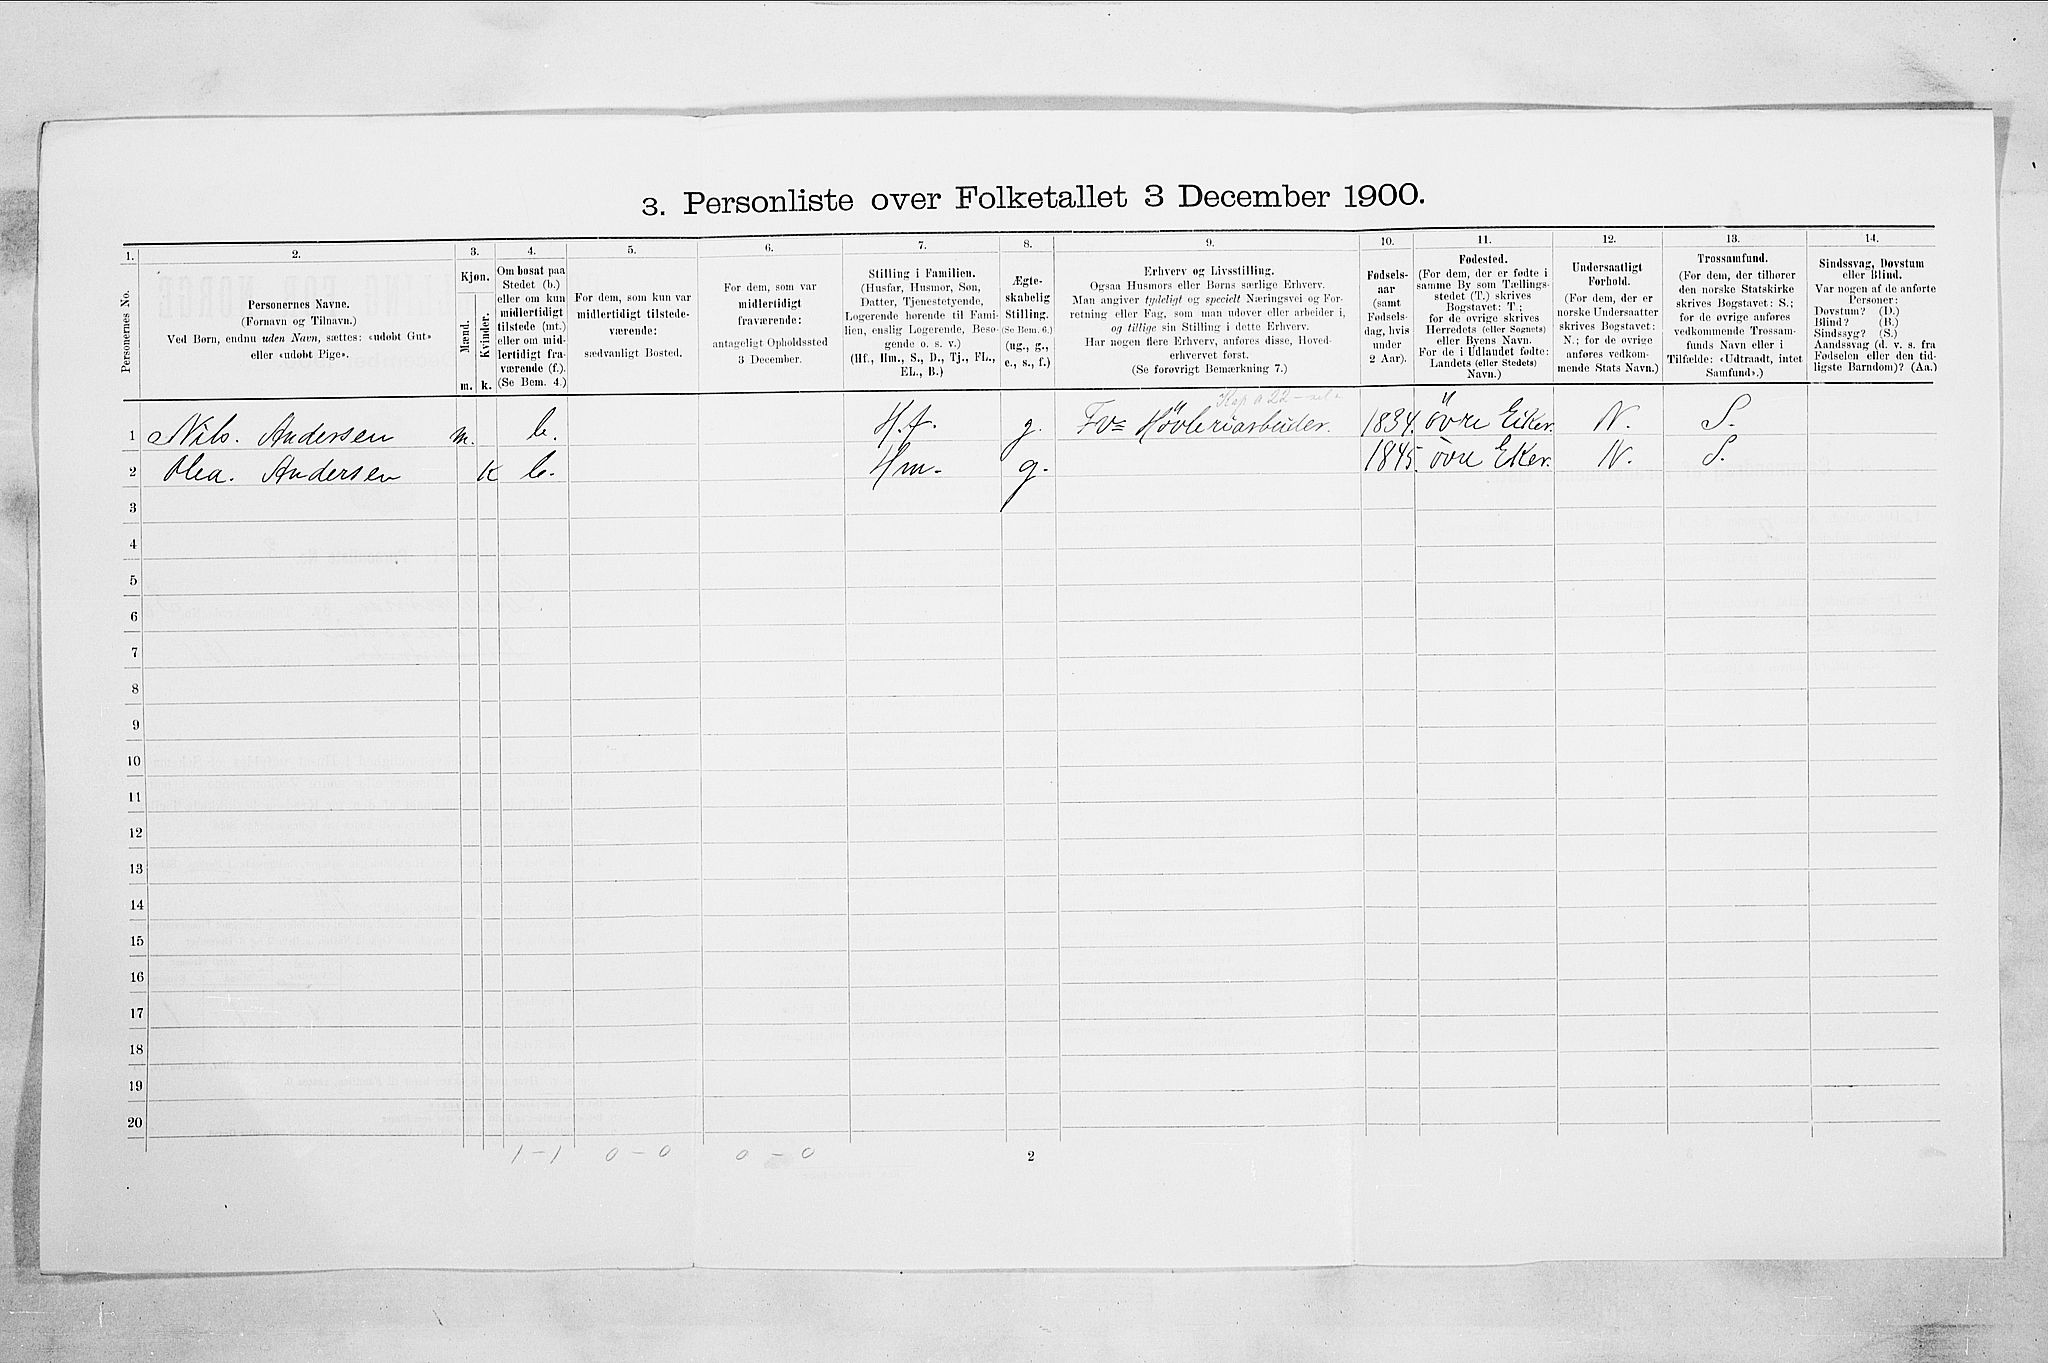 3. Personliste over Folketallet 3 December 1900.
1. 2. 3. 4. 5. 6. 7. 8. 9. 10. 11. 12. 13. 14.
Personernes No.
Personernes Navne.
(Fornavn og Tilnavn.)
Ved Børn, endnu uden Navn, sættes: «udøbt Gut»
eller «udøbt Pige».
Kjøn.
Mænd.
Kvinder.
m. k.
Om bosat paa
Stedet (b.)
eller om kun
midlertidigt
tilstede (mt.)
eller om mid-
lertidigt fra-
værende (f.).
(Se Bem. 4.)
For dem, som kun var
midlertidigt tilstede-
værende:
sædvanligt Bosted.
For dem, som var
midlertidigt
fraværende:
antageligt Opholdssted
3 December.
Stilling i Familien.
(Husfar, Husmor, Søn,
Datter, Tjenestetyende,
Logerende hørende til Fami-
lien, enslig Logerende, Besø-
gende o. s. v.)
(Hf., Hm., S., D., Tj., FL.,
EL., B.)
Ægte-
skabelig
Stilling.
(Se Bem. 6.)
(ug., g.,
e., s., f.)
Erhverv og Livsstilling.
Ogsaa Husmors eller Børns særlige Erhverv.
Man angiver tydeligt og specielt Næringsvei og For-
retning eller Fag, som man udøver eller arbeider i,
og tillige sin Stilling i dette Erhverv.
Har nogen flere Erhverv, anføres disse, Hoved-
erhvervet først.
(Se forøvrigt Bemærkning 7.)
Fødsels-
aar
(samt
Fødsels-
dag, hvis
under
2 Aar).
Fødested.
(For dem, der er fødte i
samme By som Tællings-
stedet (T.) skrives
Bogstavet: T;
for de øvrige skrives
Herredets (eller Sognets)
eller Byens Navn.
For de i Udlandet fødte:
Landets (eller Stedets)
Navn.)
Undersaatligt
Forhold.
(For dem, der er
norske Undersaatter
skrives Bogstavet:
N.; for de øvrige
anføres vedkom-
mende Stats Navn.)
Trossamfund.
(For dem, der tilhører
den norske Statskirke
skrives Bogstavet: S.;
for de øvrige anføres
vedkommende Trossam-
funds Navn eller i
Tilfælde: «Udtraadt, intet
Samfund».)
Sindssvag, Døvstum
eller Blind.
Var nogen af de anførte
Personer:
Døvstum? (D.)
Blind? (B.)
Sindssyg? (S.)
Aandssvag (d. v. s. fra
Fødselen eller den tid-
ligste Barndom)? (Aa.)
1 Nils. Andersen m. b. H.f. g. Høvleriarbeider. 1834. övre Eiker. N. S.
2 Olea. Andersen K b. Hm. g. 1845. övre Eker. N. S.
3
4
5
6
7
8
9
10
11
12
13
14
15
16
17
18
19
20
1 - 1 0 - 0 0 - 0 2